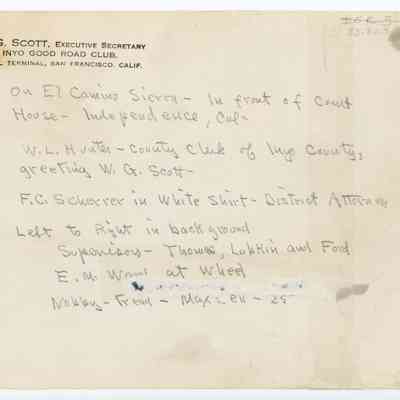 G. SCOTT, EXECUTIVE SECRETARY
INYO GOOD ROAD CLUB.
L TERMINAL, SAN FRANCISCO. CALIF.
On El Camino Sierra - In front of Court
House - Independence, Cal -
W. L. Hunter - County Clerk of Inyo County,
greeting W. G. Scott -
F. C. Scherrer in White Shirt - District Attorney
Left to Right in background
Supervisors - Thomas, and Ford
E. M. at Wheel